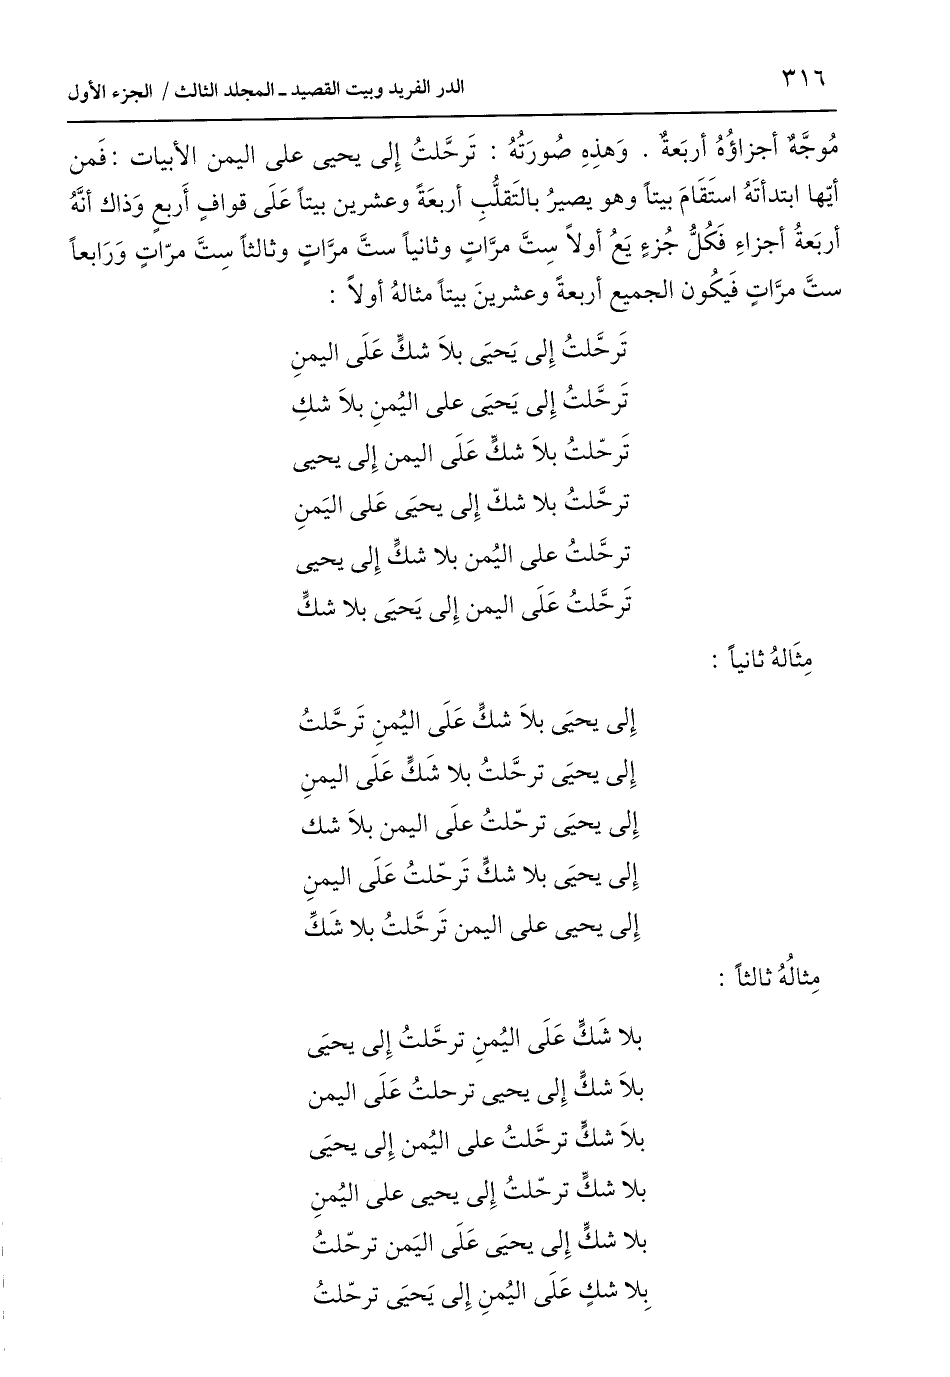 ٣١٦
الدر الفريد وبيت القصيد ـ المجلد الثالث / الجزء الأول
مُوجَّهٌ أجزاؤُهُ أربَعةٌ . وَهذِهِ صُورَتُهُ : تَرحَّلتُ إلى يحيى على اليمن الأبيات : فَمن
أيّها ابتدأتَهُ استَقَامَ بيتاً وهو يصيرُ بالتَقلُّبِ أربعَةً وعشرين بيتاً عَلَى قوافٍ أَربعٍ وَذاك أنهُ
أربَعةُ أجزاءِ فَكُلُّ جُزءٍ يَعُ أولاً ستَّ مرَّاتٍ وثانياً ستَّ مرَّاتٍ وثالثاً سِتَّ مرّاتٍ وَرَابعاً
ستَّ مرَّاتٍ فَيكُون الجميع أربعةً وعشرينَ بيتاً مثالهُ أولاً :
تَرحَّلتُ إلى يَحيَى بلاَ شكٍّ عَلَى اليمنِ
تَرحَّلتُ إلى يَحيَى على اليُمنِ بلاَ شكِ
تَرحّلتُ بلاَ شكٍّ عَلَى اليمن إلى يحيى
ترحَّلتُ بلا شكّ إلى يحيَى عَلى اليَمنِ
ترحَّلتُ على اليُمن بلا شكٍّ إلى يحيى
تَرحَّلتُ عَلَى اليمن إلى يَحيَى بلا شكٍّ
مِثَالهُ ثانياً :
إلى يحيَى بلاَ شكٍّ عَلَى اليُمنِ تَرحَّلتُ
إلى يحيَى ترحَّلتُ بلا شَكٍّ عَلَى اليمنِ
إلى يحيَى ترحّلتُ علَى اليمن بلاَ شك
إلى يحيَى بلا شكٍّ تَرحّلتُ عَلَى اليمنِ
إلى يحيى على اليمن تَرحَّلتُ بلا شَكِّ
مِثالُهُ ثالثاً :
بلا شَكٍّ عَلَى اليُمنِ ترحَّلتُ إلى يحيَى
بلاَ شكٍّ إلى يحيى ترحلتُ عَلَى اليمن
بلاَ شكٍّ ترحَّلتُ على اليُمن إلى يحيَى
بلا شكٍّ ترحّلتُ إلى يحيى على اليُمنِ
بلا شكٍّ إلى يحيَى عَلَى اليَمن ترحّلتُ
بِلا شكٍ عَلَى اليُمنِ إلى يَحيَى ترحّلتُ